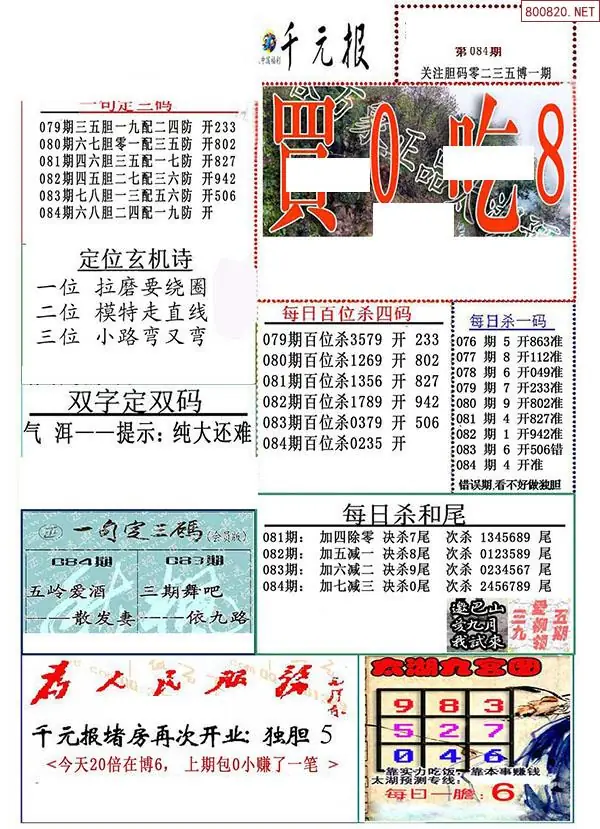 800820.NET
千元报
第084期
关注胆码零二三五博一期
買0吃8
一句定三码
079期三五胆一九配二四防 开233
080期六七胆零一配三五防 开802
081期四六胆三五配一七防 开827
082期四五胆二七配三六防 开942
083期七八胆一三配五六防 开506
084期六八胆二四配一九防 开
定位玄机诗
一位 拉磨要绕圈
二位 模特走直线
三位 小路弯又弯
每日百位杀四码
079期百位杀3579 开 233
080期百位杀1269 开 802
081期百位杀1356 开 827
082期百位杀1789 开 942
083期百位杀0379 开 506
084期百位杀0235 开
每日杀一码
076 期 5 开863准
077 期 8 开112准
078 期 6 开049准
079 期 7 开233准
080 期 9 开802准
081 期 4 开827准
082 期 1 开942准
083 期 6 开506错
084 期 4 开准
错误期,看不好做独胆
双字定双码
气 洱——提示:纯大还难
每日杀和尾
081期: 加四除零 决杀7尾 次杀 1345689 尾
082期: 加五减一 决杀8尾 次杀 0123589 尾
083期: 加六减二 决杀9尾 次杀 0234567 尾
084期: 加七减三 决杀0尾 次杀 2456789 尾
正 一句定三碼(会员版)
084期 083期
五岭爱酒 三期舞吧
——散发妻 ——依九路
为人民服务
千元报堵房再次开业:独胆 5
<今天20倍在博6, 上期包0小赚了一笔 >
太湖九宫图
9 8 3
5 2 7
0 4 6
靠实力吃饭,靠本事赚钱
太湖预测专线:
每日一膽: 6